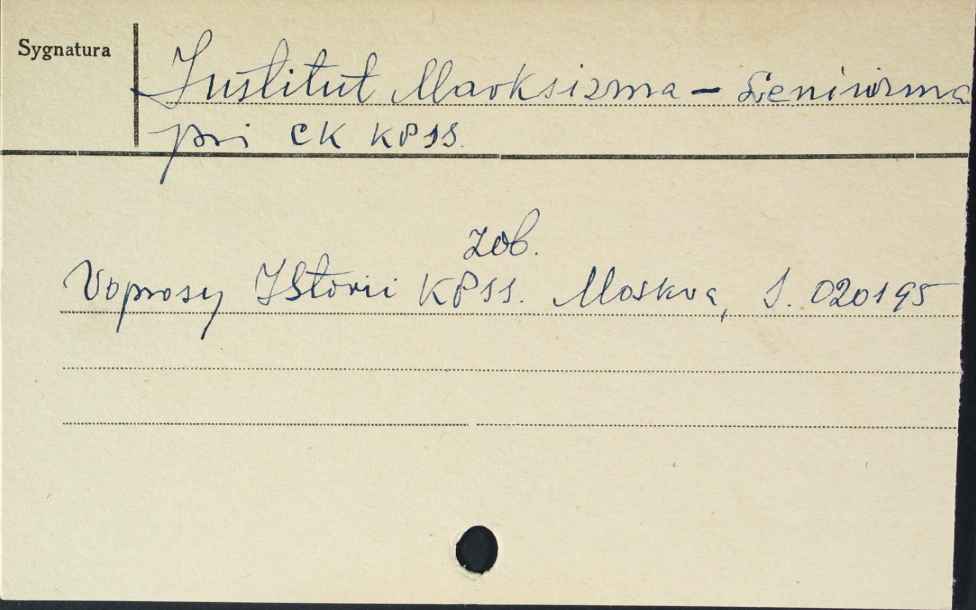 Sygnatura
Institut Marksizma - Leninizma
pri CK KPSS.
zob.
Voprosy Istorii KPSS. Moskva, S. 020195